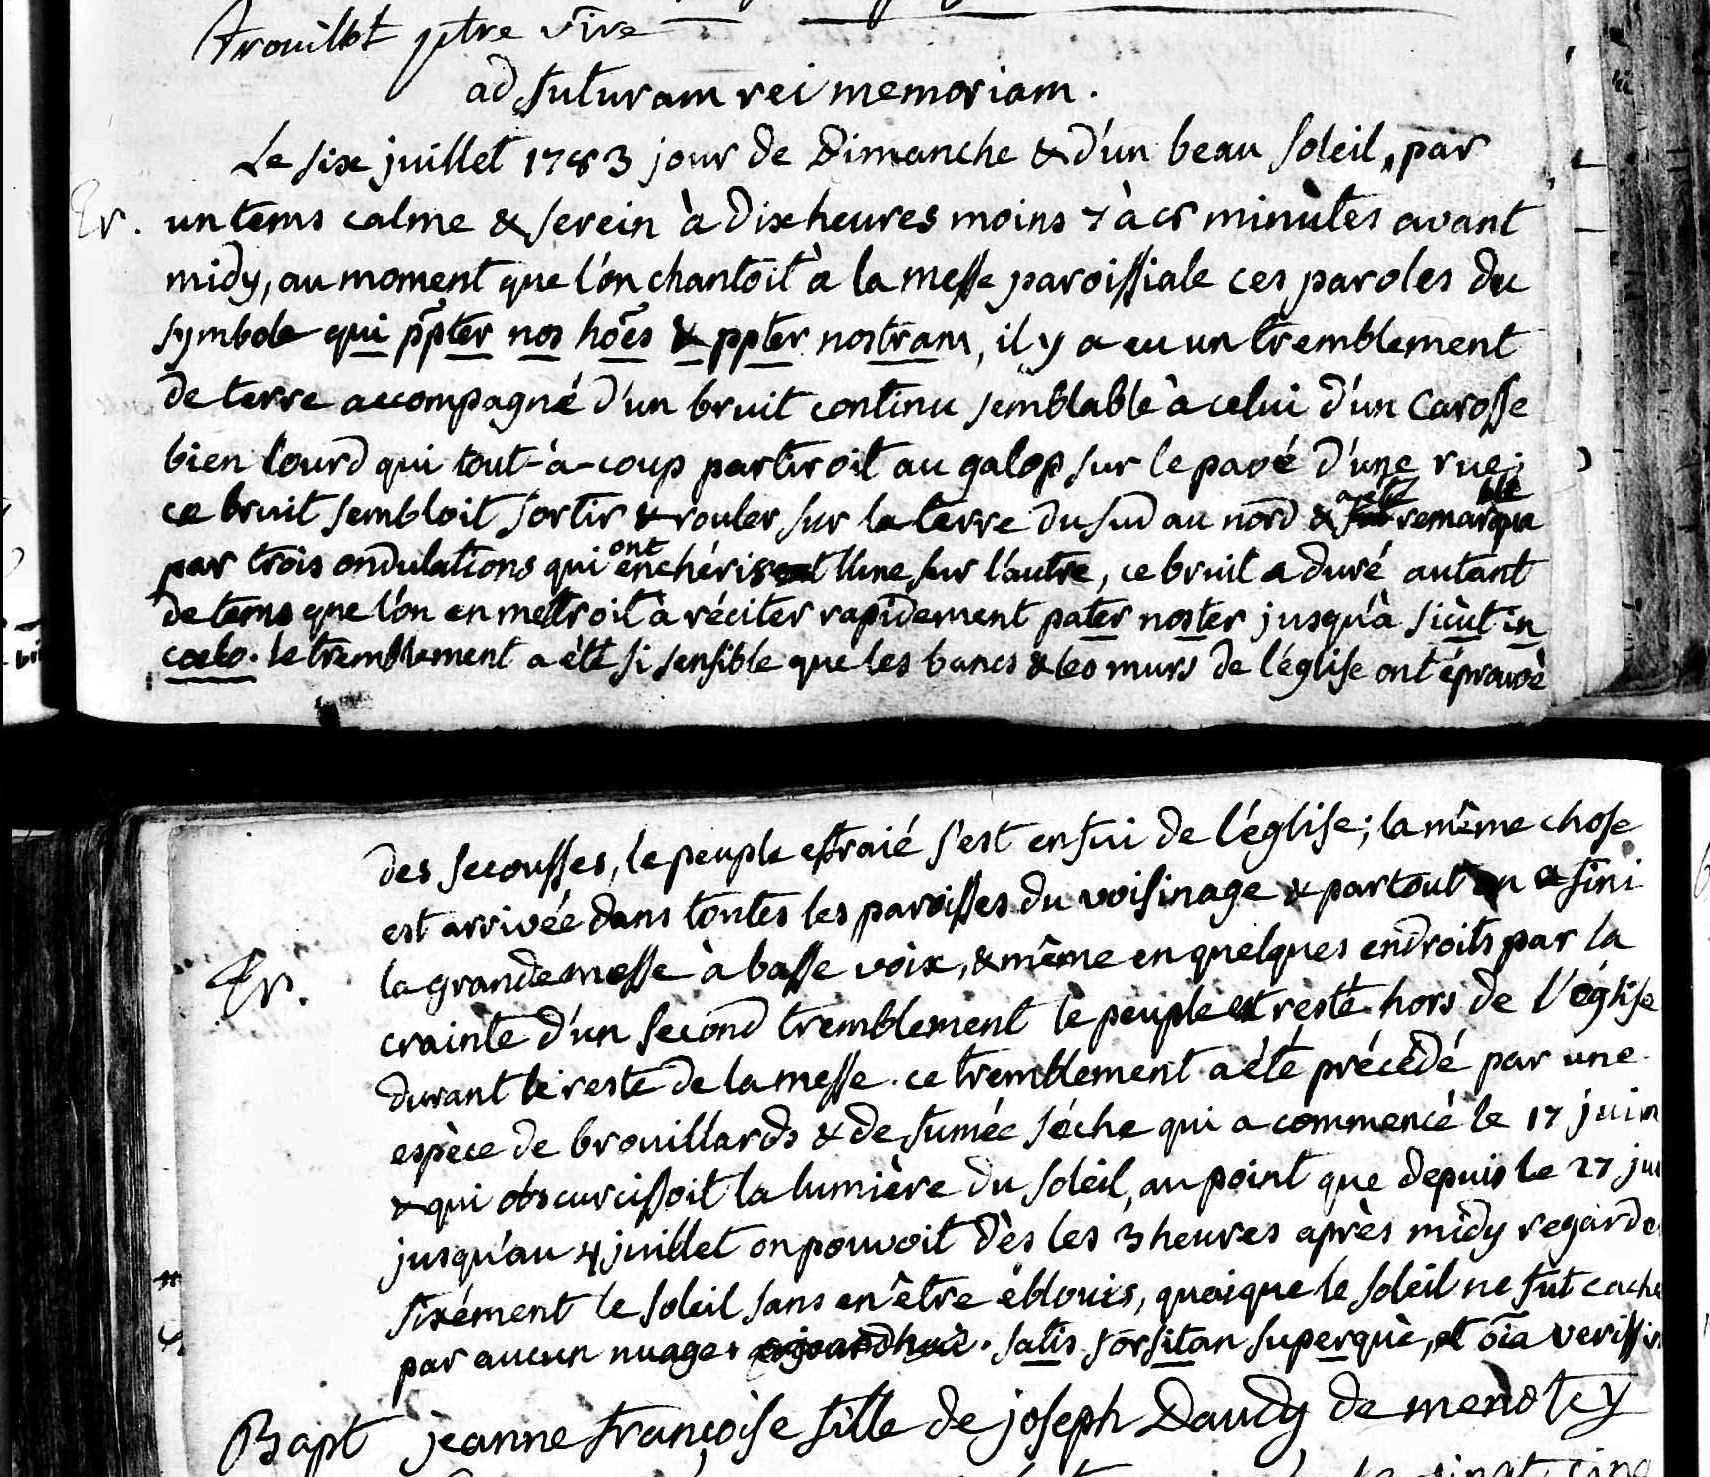 Trouillot ptre vire
ad futuram rei memoriam.
Le six juillet 1783 jour de Dimanche & d'un beau soleil, par
un tems calme & serein à dix heures moins 7 à 8 minutes avant
midy, au moment que l'on chantoit à la messe paroissiale ces paroles du
symbole qui ppter nos hões & ppter nostram, il y a eu un tremblement
de terre accompagné d'un bruit continu semblable à celui d'un carosse
bien lourd qui tout-à-coup partiroit au galop sur le pavé d'une rue;
ce bruit sembloit sortir & rouler sur la terre du sud au nord & a été remarquable
par trois ondulations qui ont enchéris l'une sur l'autre, ce bruit a duré autant
de tems que l'on en mettroit à réciter rapidement pater noster jusqu'à sicut in
coelo. le tremblement a été si sensible que les bancs & les murs de l'église ont éprouvé
des secousses, le peuple effraié s'est enfui de l'église; la même chose
est arrivée dans toutes les paroisses du voisinage & partout on a fini
la grande messe à basse voix, & même en quelques endroits par la
Tr.
crainte d'un second tremblement le peuple est resté hors de l'église
durant le reste de la messe. ce tremblement a été précédé par une
espèce de brouillards & de fumée séche qui a commencé le 17 juin
& qui obscurcissoit la lumière du soleil, au point que depuis le 27 jui
jusqu'au 4 juillet on pouvoit dès les 3 heures après midy regarde
fixément le soleil sans en être éblouis, quoique le soleil ne fût caché
par aucun nuage. satis forsitan superque, et oĩa verissi
Bapt jeanne françoise fille de joseph Daudy de menotey